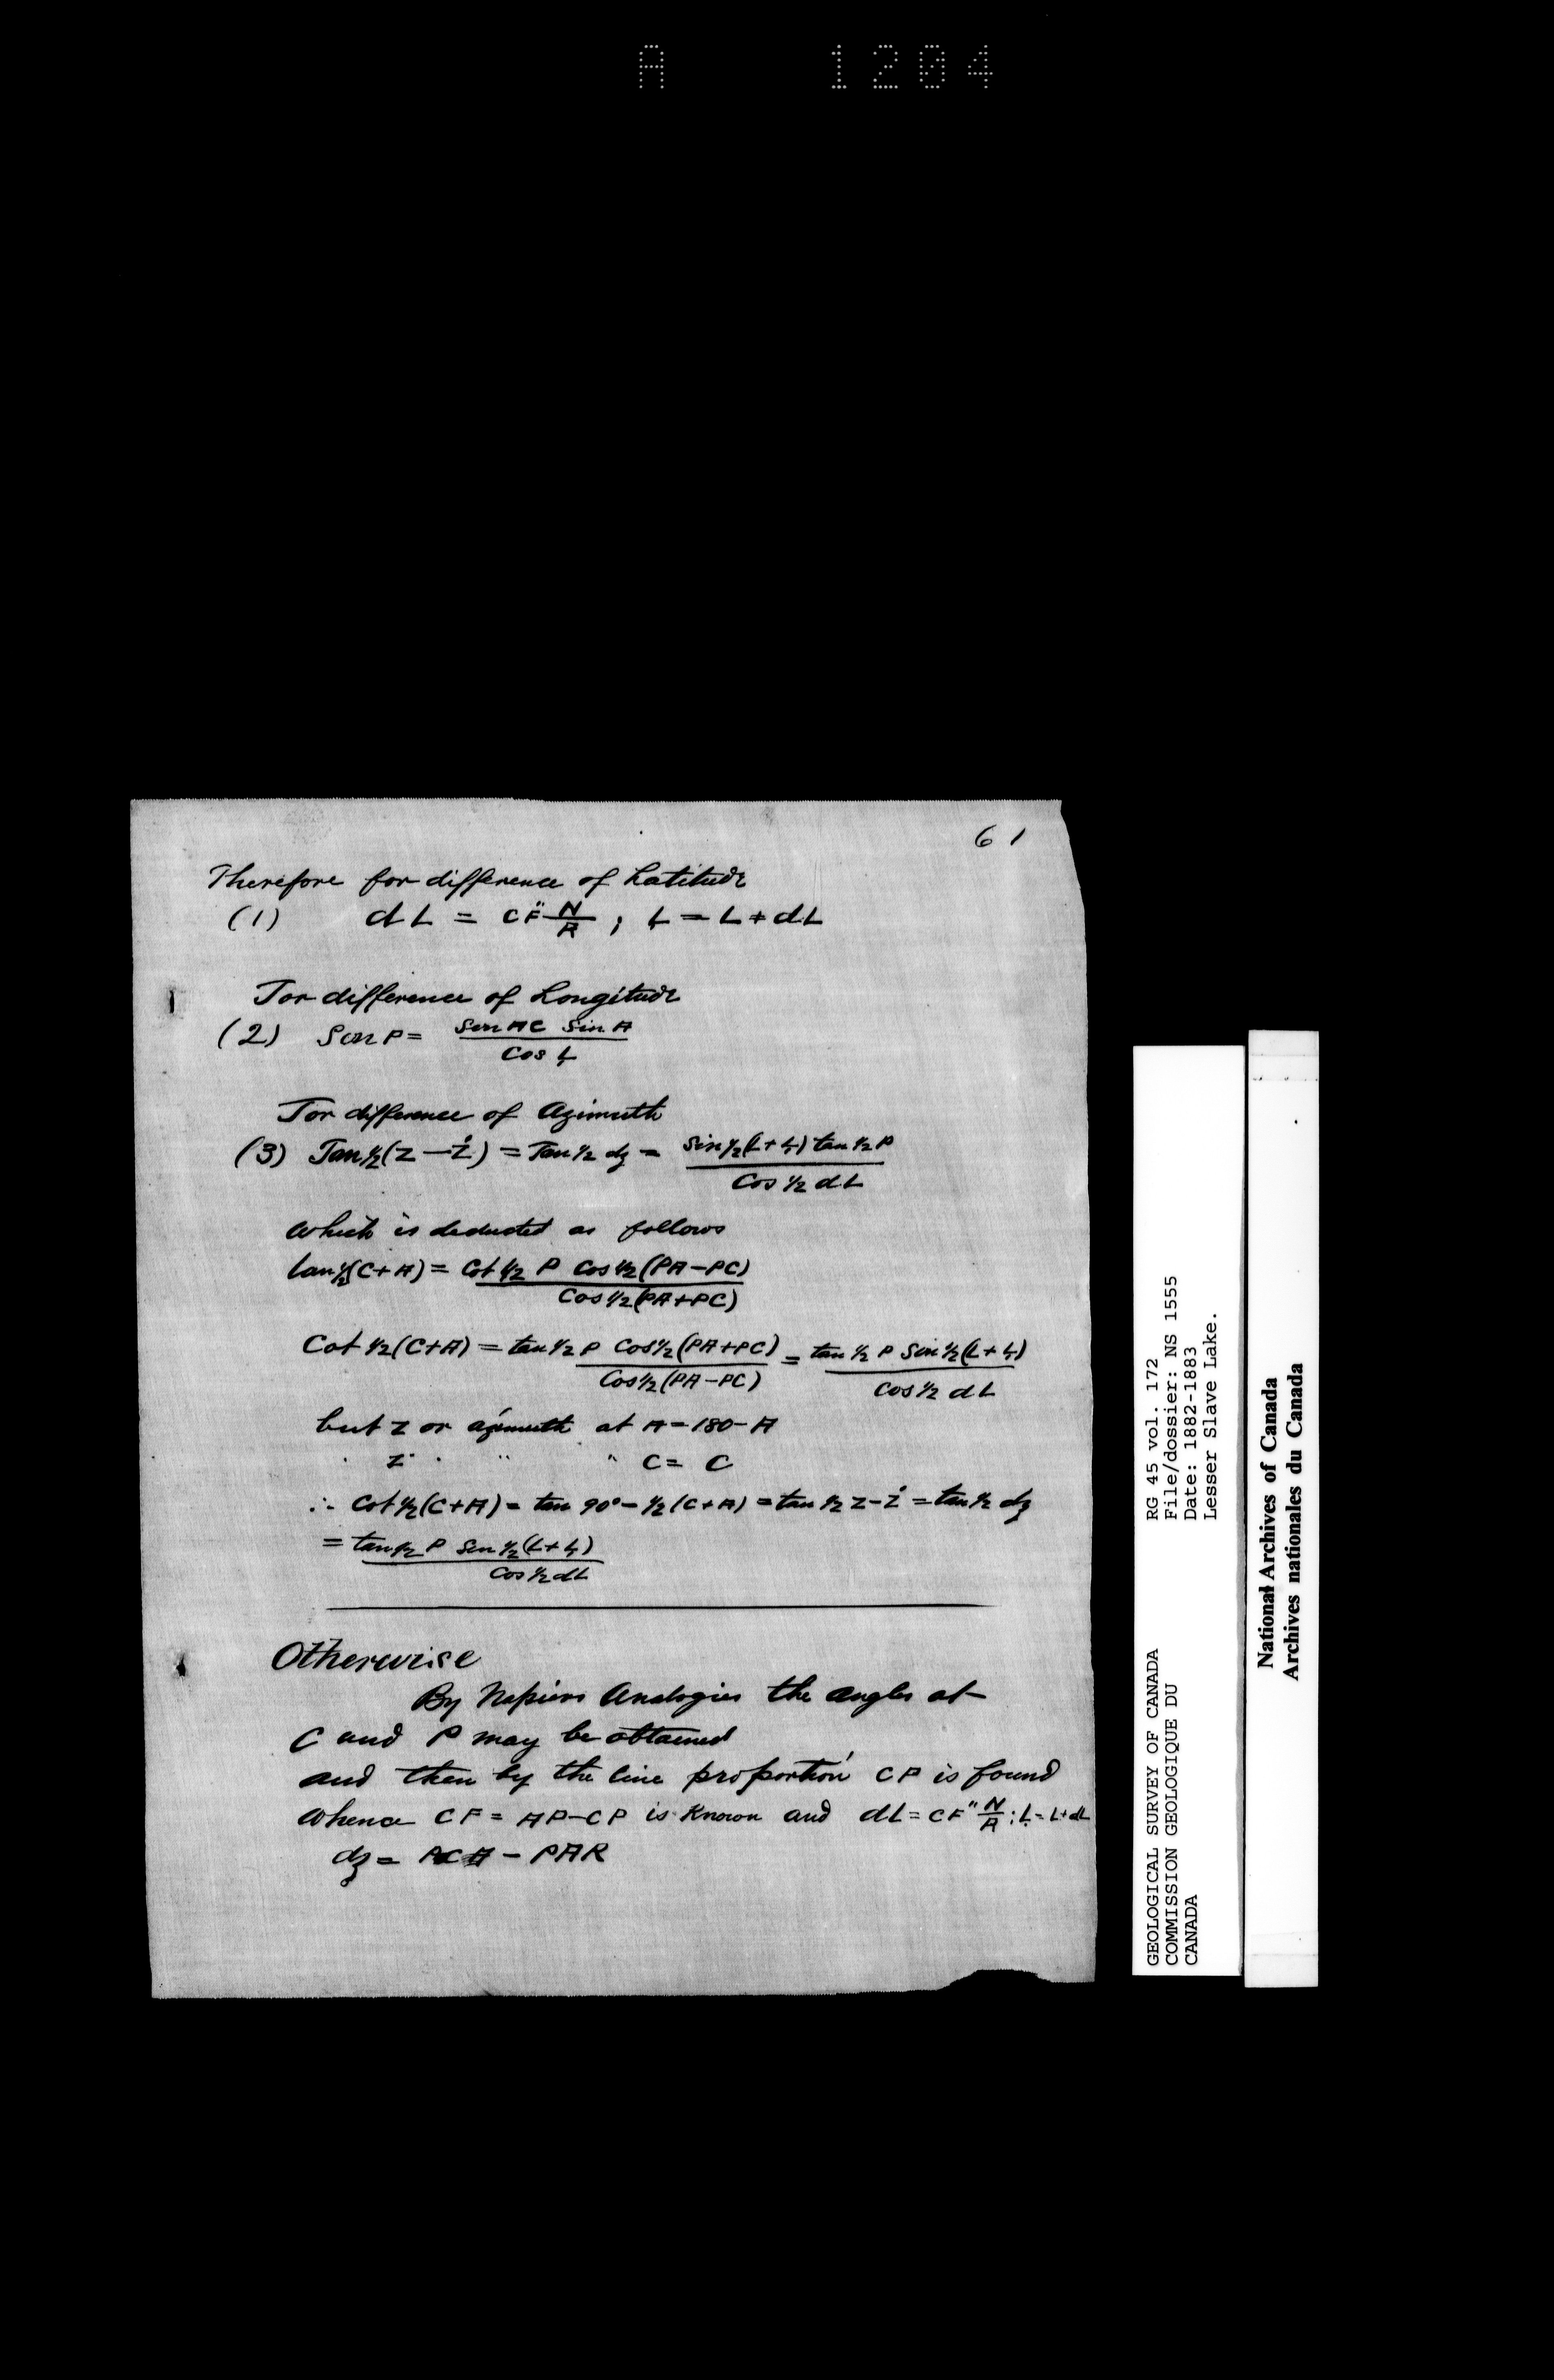 A 1204
61
Therefore for difference of Latitude
(1) dL = CF" N/R ; L, = L + dL
For difference of Longitude
(2) Sin P = Sin AC Sin A / Cos L,
For difference of Azimuth
(3) Tan ½(Z - Z') = Tan ½ dz = Sin ½(L + L,) tan ½ P / Cos ½ dL
which is deducted as follows
tan ½(C + A) = Cot ½ P Cos ½(PA - PC) / Cos ½(PA + PC)
Cot ½(C + A) = tan ½ P Cos ½(PA + PC) / Cos ½(PA - PC) = tan ½ P Sin ½(L + L,) / Cos ½ dL
but Z or azimuth at A = 180 - A
" Z' " " " C = C
∴ Cot ½(C + A) = tan 90° - ½(C + A) = tan ½ Z - Z' = tan ½ dz
= tan ½ P Sin ½(L + L,) / Cos ½ dL
Otherwise
By Napiers Analogies the angles at
C and P may be obtained
and then by the sine proportion CP is found
whence CF = AP - CP is Known and dL = CF" N/R : L, = L + dL
dz = - PAR
GEOLOGICAL SURVEY OF CANADA RG 45 vol. 172
COMMISSION GEOLOGIQUE DU File/dossier: NS 1555
CANADA Date: 1882-1883
Lesser Slave Lake.
National Archives of Canada
Archives nationales du Canada